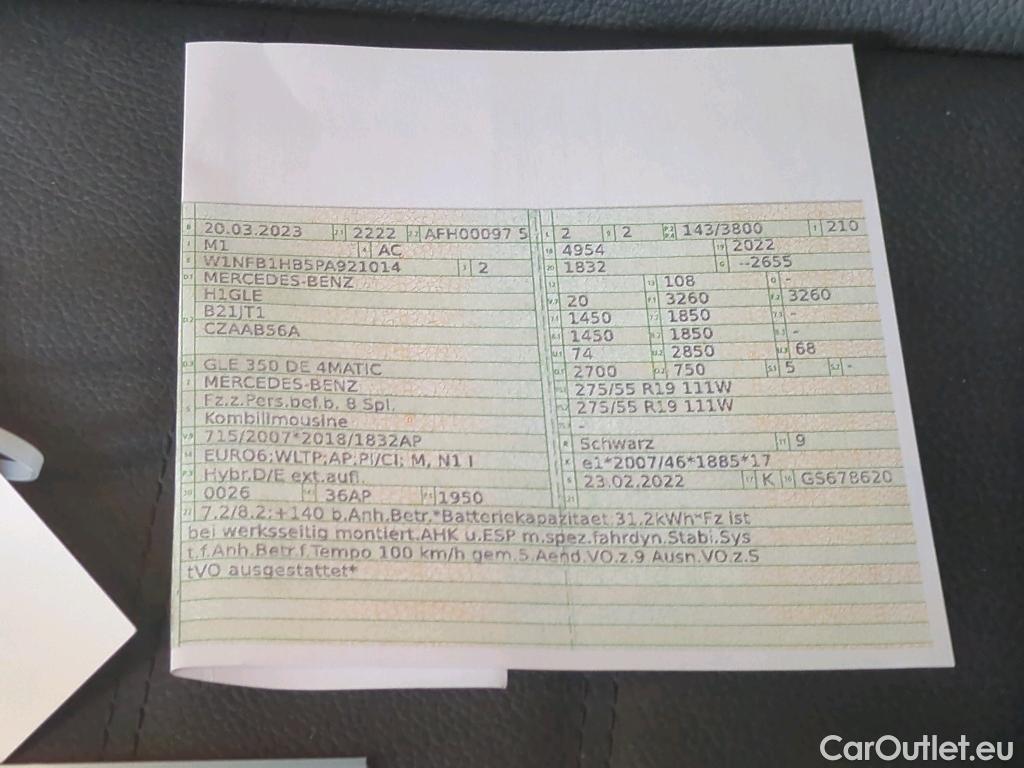 20.03.2023 2222 AFH00097 5
M1 AC
W1NFB1HB5PA921014 2
MERCEDES-BENZ
H1GLE
B21JT1
CZAAB56A
GLE 350 DE 4MATIC
MERCEDES-BENZ
Fz.z.Pers.bef.b. 8 Spl.
Kombilimousine
715/2007*2018/1832AP
EURO6;WLTP;AP;PI/CI; M, N1 I
Hybr.D/E ext.aufl.
0026 36AP 1950
2 2 143/3800 210
4954 2022
1832 --2655
108 -
20 3260 3260
1450 1850 -
1450 1850 -
74 2850 68
2700 750 5 -
275/55 R19 111W
275/55 R19 111W
-
Schwarz 9
e1*2007/46*1885*17
23.02.2022 K GS678620
7.2/8.2:+140 b.Anh.Betr.*Batteriekapazitaet 31,2kWh*Fz ist
bei werksseitig montiert.AHK u.ESP m.spez.fahrdyn.Stabi.Sys
t.f.Anh.Betr.f.Tempo 100 km/h gem.5.Aend.VO.z.9 Ausn.VO.z.S
tVO ausgestattet*
CarOutlet.eu